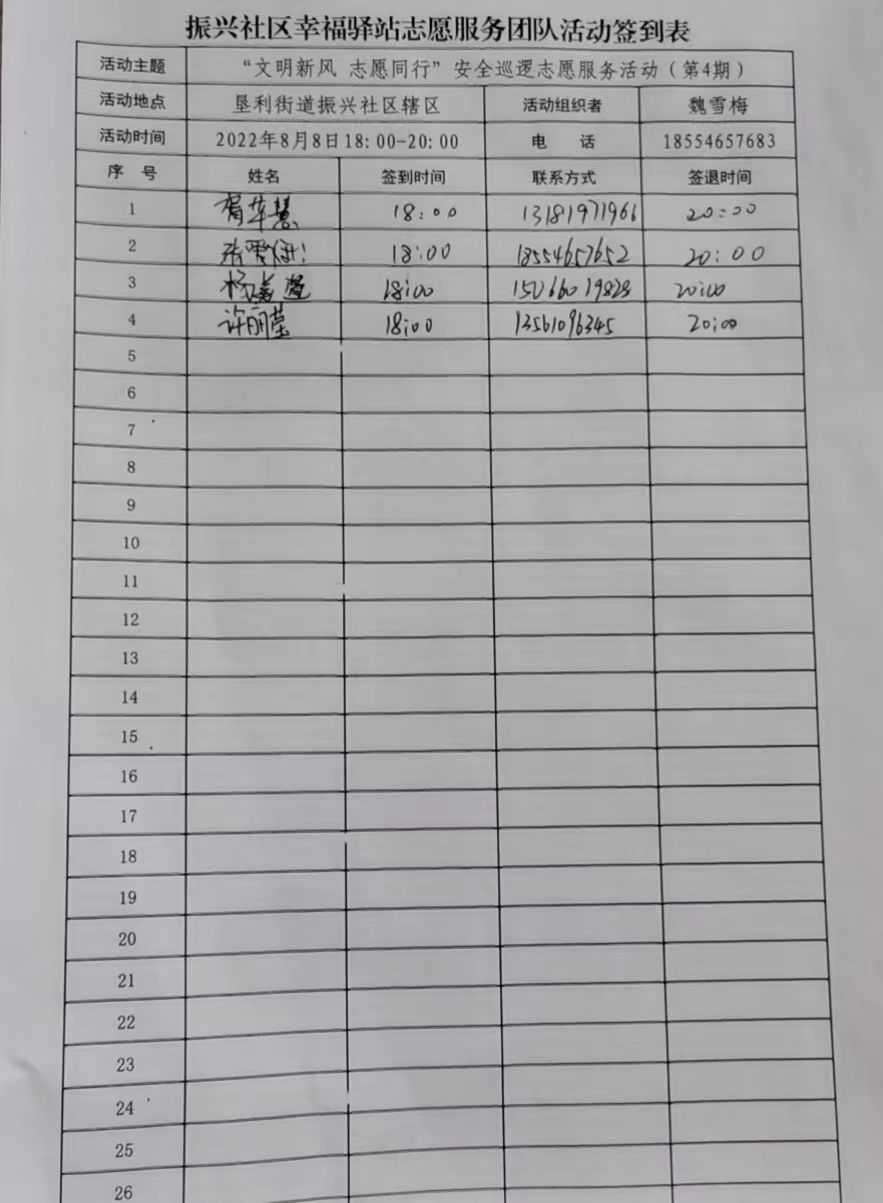 振兴社区幸福驿站志愿服务团队活动签到表
活动主题 “文明新风 志愿同行”安全巡逻志愿服务活动（第4期）
活动地点 垦利街道振兴社区辖区 活动组织者 魏雪梅
活动时间 2022年8月8日18:00-20:00 电 话 18554657683
序 号 姓名 签到时间 联系方式 签退时间
1 18:00 13181971966 20:00
2 18:00 18554657652 20:00
3 18:00 15066019828 20:00
4 许丽莹 18:00 13561096345 20:00
5
6
7
8
9
10
11
12
13
14
15
16
17
18
19
20
21
22
23
24
25
26